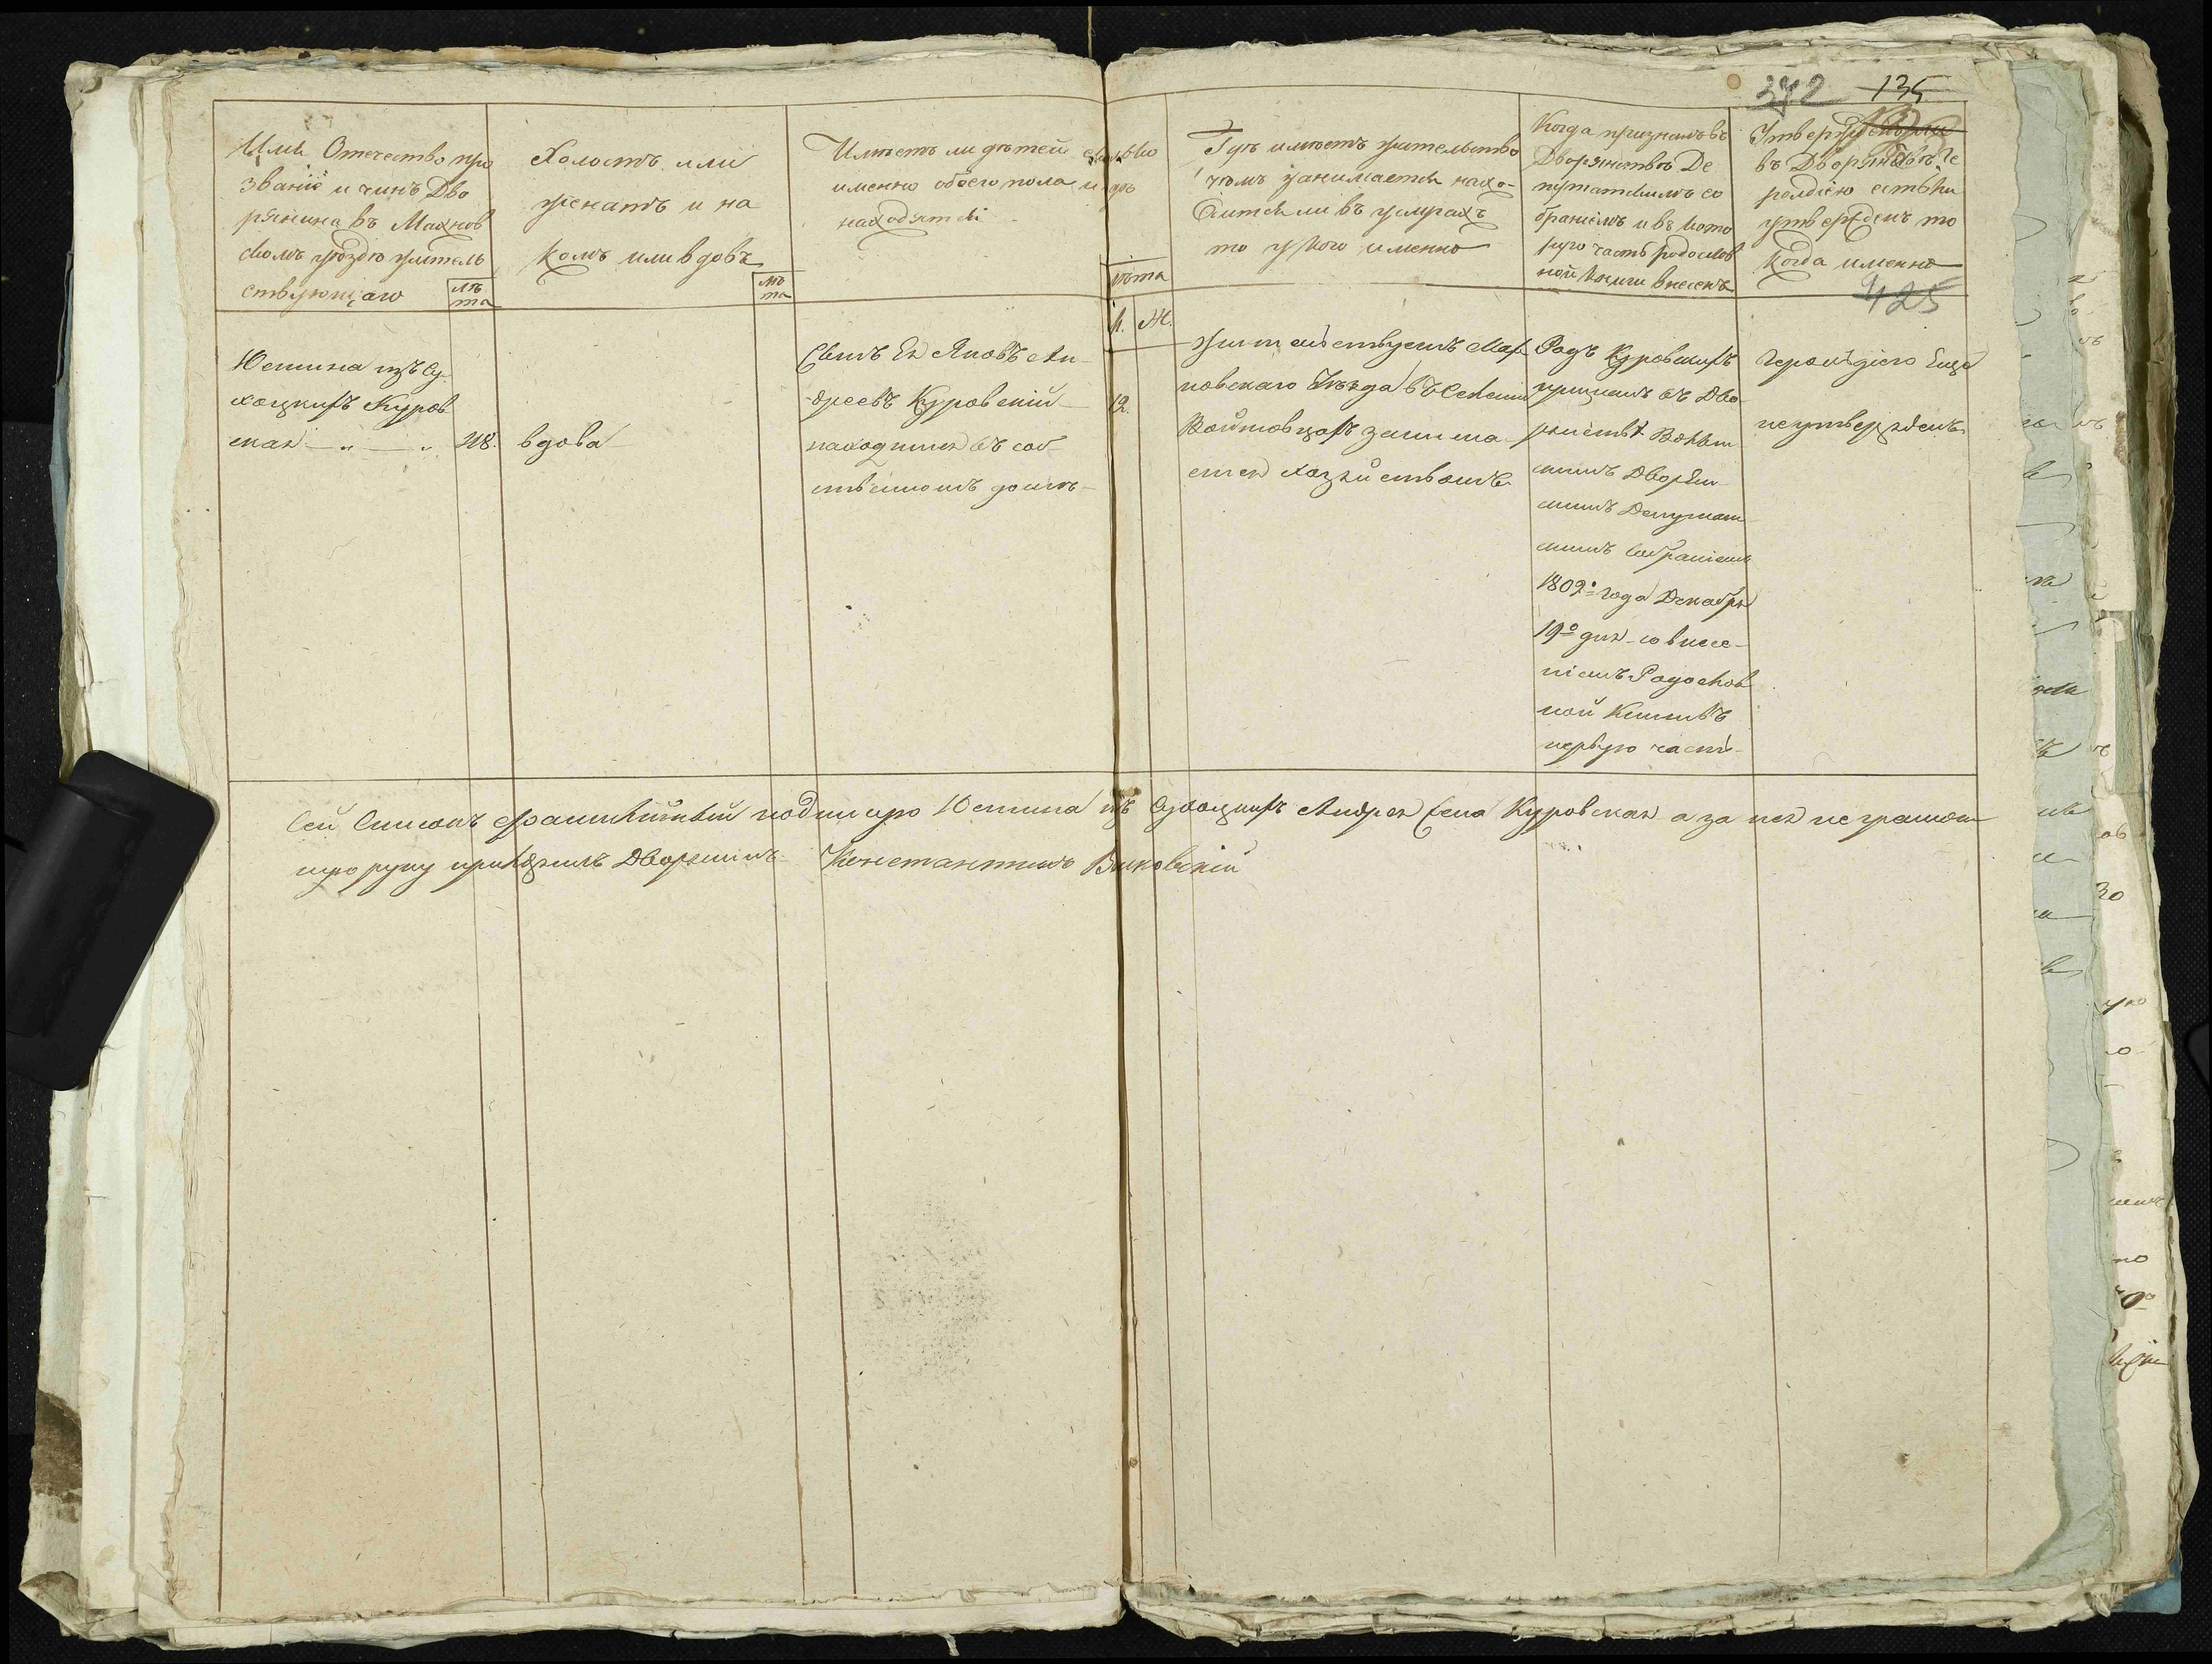 372 135
Имя Отечество про
званіе и чинъ Дво
рянина въ Махнов
скомъ уѣздѣ житель
ствующаго
лѣ
та
Холостъ или
женатъ и на
комъ или вдовъ
лѣ
та
Имѣетъ ли дѣтей сколько
именно обоего пола и гдѣ
находятся
лѣта
М. Ж.
Гдѣ имѣетъ жительство
чѣмъ занимается нахо-
дится ли въ услугахъ
то у кого именно
Когда признанъ въ
Дворянствѣ Де
путатскимъ со
браніемъ и въ кото
рую часть родослов
ной книги внесенъ
въ Дворянствѣ Ге
рольдіею естьли
утвержденъ то
когда именно
425
Юстина изъ Су-
хоцкихъ Куров
ская — „ — „
48.
вдова
Сынъ Ея Яковъ Ан-
дреевъ Куровскій
находится въ соб-
ственномъ домѣ-
12.
жительствуетъ Мах-
новскаго Уѣзда въ Селеніи
Войтовцахъ занима-
ется хозяйствомъ
Родъ Куровскихъ
признанъ въ Дво-
рянствѣ Волын
скимъ Дворян-
скимъ Депутат-
скимъ Собраніемъ
1802го года Декабря
19го дня со внесе-
ніемъ Родослов
ной Книги въ
первую часть-
Герольдіею Еще
неутвержденъ
Сей Списокъ фамилійный подписую Юстина изъ Сухоцкихъ Андреева Куровская а за нея неграмот
ную руку приложилъ Дворянинъ Константинъ Виковскій